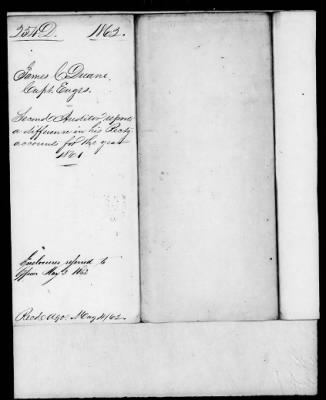 254 D. 1862.
James C. Duane,
Capt. Engrs.
Second Auditor reports
a difference in his Recty.
accounts for the year
1861
Enclosures referred to
Officer May 3 1862
Recd. A.G.O. May 10/62.